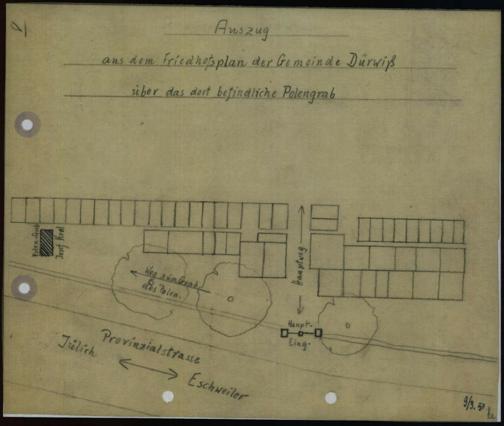 Auszug
aus dem Friedhofsplan der Gemeinde Dürwiß
über das dort befindliche Polengrab
Polen-Grab
Josef Krol
Hauptweg
Weg zum Grab
des Polen.
Haupt-
Eing.
Provinzialstrasse
Jülich
Eschweiler